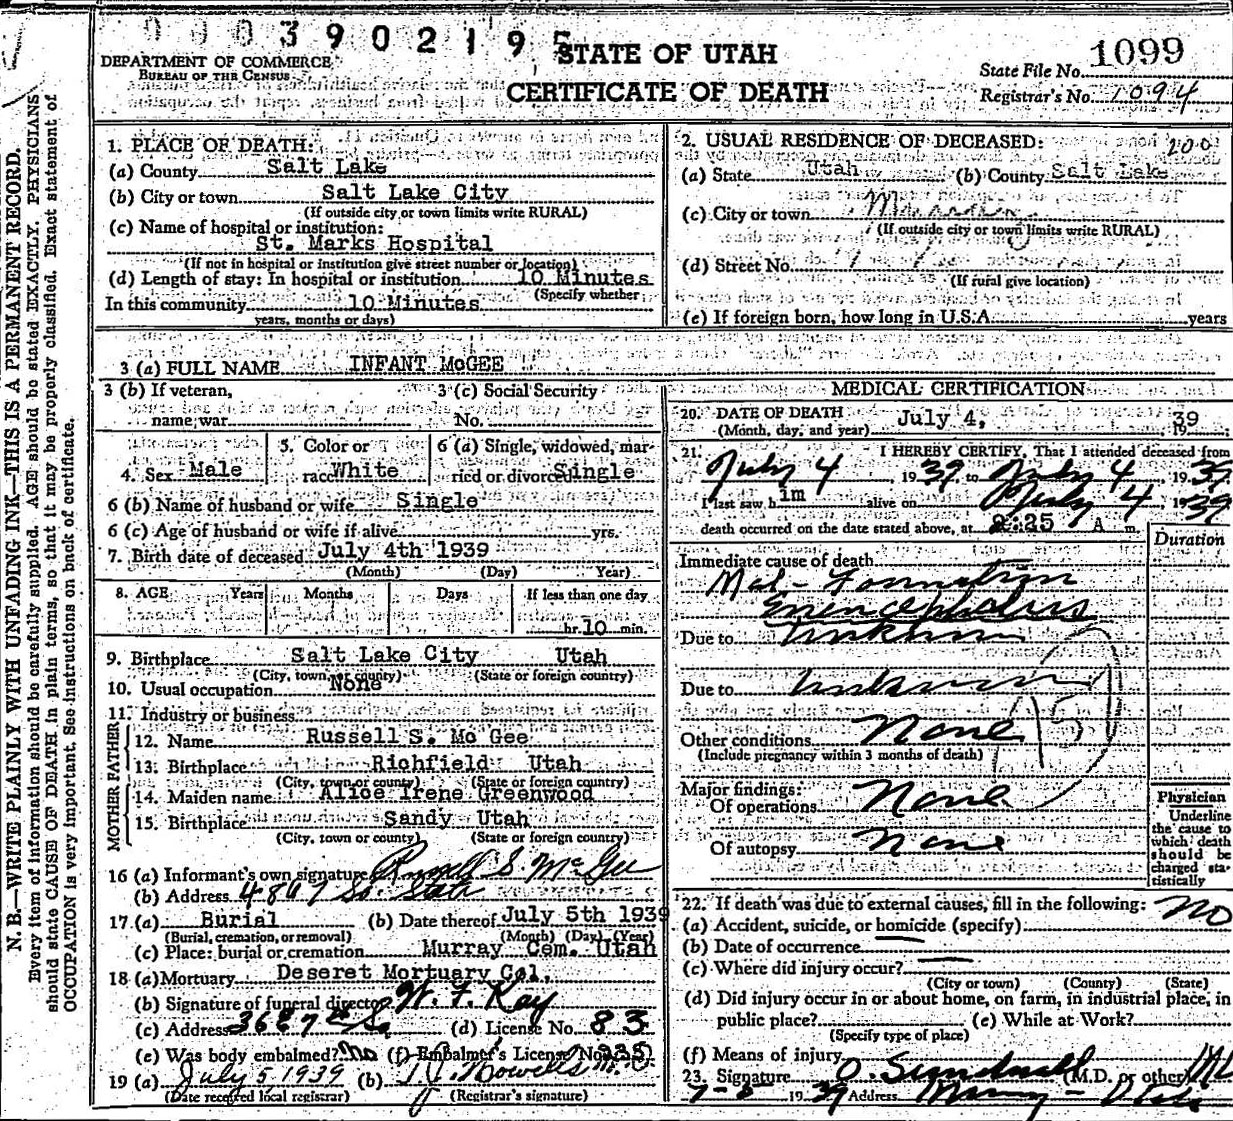 0003902195
STATE OF UTAH
CERTIFICATE OF DEATH
DEPARTMENT OF COMMERCE
BUREAU OF THE CENSUS
State File No. 1099
Registrar's No. 1094
N. B.—WRITE PLAINLY WITH UNFADING INK—THIS IS A PERMANENT RECORD.
Every item of information should be carefully supplied. AGE should be stated EXACTLY. PHYSICIANS
should state CAUSE OF DEATH in plain terms, so that it may be properly classified. Exact statement of
OCCUPATION is very important. See instructions on back of certificate.
1. PLACE OF DEATH:
(a) County Salt Lake
(b) City or town Salt Lake City
(If outside city or town limits write RURAL)
(c) Name of hospital or institution:
St. Marks Hospital
(If not in hospital or institution give street number or location)
(d) Length of stay: In hospital or institution 10 Minutes
(Specify whether
In this community 10 Minutes
years, months or days)
2. USUAL RESIDENCE OF DECEASED: 200
(a) State Utah (b) County Salt Lake
(c) City or town Murray
(If outside city or town limits write RURAL)
(d) Street No.
(If rural give location)
(e) If foreign born, how long in U.S.A. years
3 (a) FULL NAME INFANT McGEE
3 (b) If veteran,
name war
3 (c) Social Security
No.
4. Sex Male
5. Color or
race White
6 (a) Single, widowed, mar-
ried or divorced Single
6 (b) Name of husband or wife Single
6 (c) Age of husband or wife if alive yrs.
7. Birth date of deceased July 4th 1939
(Month) (Day) Year)
8. AGE Years Months Days If less than one day
hr. 10 min.
9. Birthplace Salt Lake City Utah
(City, town, or county) (State or foreign country)
10. Usual occupation None
11. Industry or business
FATHER
12. Name Russell S. Mc Gee
13. Birthplace Richfield Utah
(City, town or county) (State or foreign country)
MOTHER
14. Maiden name Alice Irene Greenwood
15. Birthplace Sandy Utah
(City, town or county) (State or foreign country)
16 (a) Informant's own signature Russell S McGee
(b) Address 4867 So. State
17 (a) Burial (b) Date thereof July 5th 1939
(Burial, cremation, or removal) (Month) (Day) (Year)
(c) Place: burial or cremation Murray Cem. Utah
18 (a) Mortuary Deseret Mortuary Col.
(b) Signature of funeral director W. F. Kay
(c) Address 36 E 7th So. (d) License No. 83
(e) Was body embalmed? No (f) Embalmer's License No. 235
19 (a) July 5, 1939 (b)
(Date received local registrar) (Registrar's signature)
MEDICAL CERTIFICATION
20. DATE OF DEATH July 4, 1939
(Month, day, and year)
21. I HEREBY CERTIFY, That I attended deceased from
July 4 1939, to July 4 1939
I last saw him alive on July 4, 1939
death occurred on the date stated above, at 2:25 A m.
Duration
Immediate cause of death
Mal-Formation
Due to Unknown
Due to Unknown
Other conditions None
(Include pregnancy within 3 months of death)
15
Major findings:
Of operations None
Of autopsy None
Physician
Underline
the cause to
which death
should be
charged sta-
tistically
22. If death was due to external causes, fill in the following: No
(a) Accident, suicide, or homicide (specify)
(b) Date of occurrence
(c) Where did injury occur?
(City or town) (County) (State)
(d) Did injury occur in or about home, on farm, in industrial place, in
public place? (e) While at Work?
(Specify type of place)
(f) Means of injury
23. Signature O. Sundwall (M.D. or other) MD
7-5 1939 Address Murray - Utah